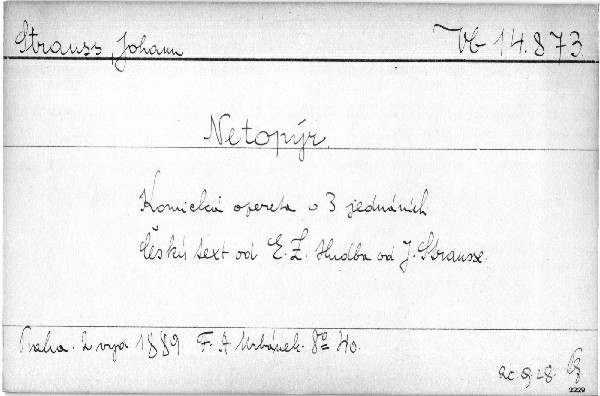 Strauss, Johann Vb 14.873
Netopýr.
Komická opereta o 3 jednáních
Český text od E. Z. Hudba od J. Strausse.
Praha. 2 vyd 1889. F. A Urbánek. 8º 40.
2229